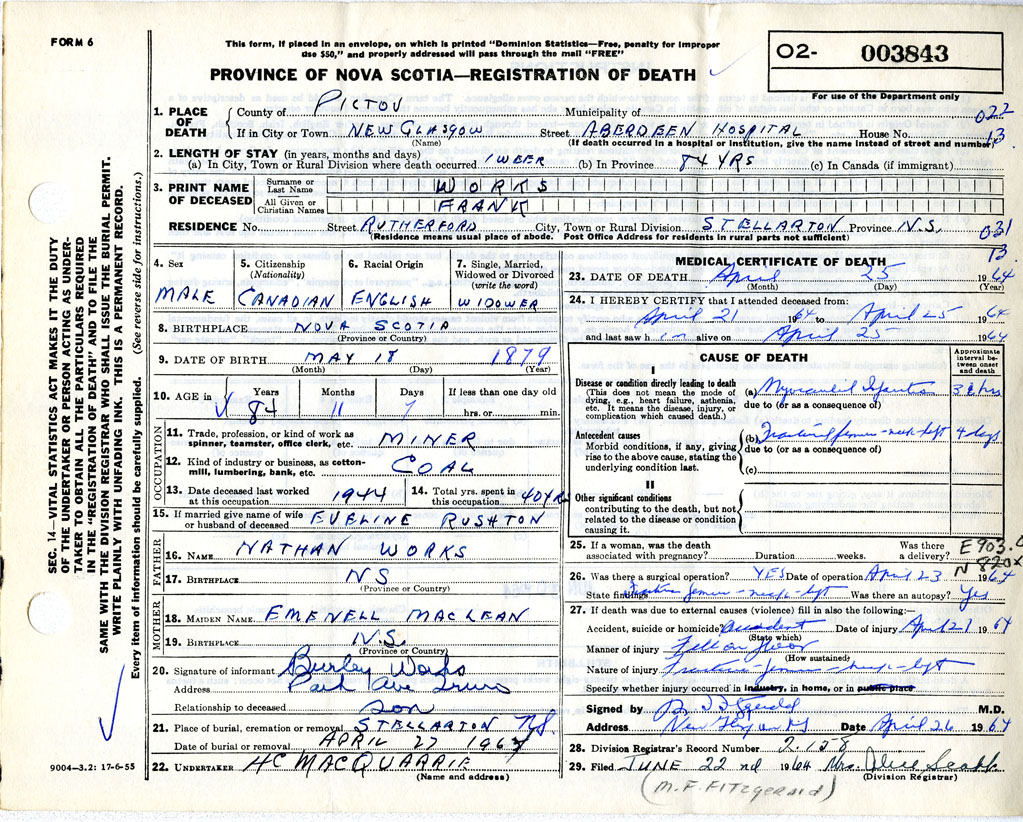 FORM 6
This form, if placed in an envelope, on which is printed "Dominion Statistics—Free, penalty for improper
use $50," and properly addressed will pass through the mail "FREE"
PROVINCE OF NOVA SCOTIA—REGISTRATION OF DEATH
O2- 003843
For use of the Department only
1. PLACE OF DEATH
County of PICTOU Municipality of 022
If in City or Town NEW GLASGOW Street ABERDEEN HOSPITAL House No. 13
(Name) (If death occurred in a hospital or institution, give the name instead of street and number)
2. LENGTH OF STAY (in years, months and days)
(a) In City, Town or Rural Division where death occurred 1 WEEK (b) In Province 84 YRS (c) In Canada (if immigrant)
3. PRINT NAME OF DECEASED
Surname or Last Name WORKS
All Given or Christian Names FRANK
RESIDENCE No. Street RUTHERFORD City, Town or Rural Division STELLARTON Province N.S. 031
(Residence means usual place of abode. Post Office Address for residents in rural parts not sufficient) 13.
4. Sex MALE
5. Citizenship (Nationality) CANADIAN
6. Racial Origin ENGLISH
7. Single, Married, Widowed or Divorced (write the word) WIDOWER
8. BIRTHPLACE NOVA SCOTIA
(Province or Country)
9. DATE OF BIRTH MAY 18 1879
(Month) (Day) (Year)
10. AGE in Years 84 Months 11 Days 7 If less than one day old hrs. or min.
OCCUPATION
11. Trade, profession, or kind of work as spinner, teamster, office clerk, etc. MINER
12. Kind of industry or business, as cotton-mill, lumbering, bank, etc. COAL
13. Date deceased last worked at this occupation 1944
14. Total yrs. spent in this occupation 40 YRS
15. If married give name of wife or husband of deceased EVELINE RUSHTON
FATHER
16. NAME NATHAN WORKS
17. BIRTHPLACE NS
(Province or Country)
MOTHER
18. MAIDEN NAME EMENELL MACLEAN
19. BIRTHPLACE N.S.
(Province or Country)
20. Signature of informant Burley Works
Address Park Ave Truro
Relationship to deceased son
21. Place of burial, cremation or removal STELLARTON NS.
Date of burial or removal APRIL 27 1964
22. UNDERTAKER HC MACQUARRIE
(Name and address)
MEDICAL CERTIFICATE OF DEATH
23. DATE OF DEATH April 25 1964
(Month) (Day) (Year)
24. I HEREBY CERTIFY that I attended deceased from:
April 21 1964 to April 25 1964
and last saw him alive on April 25 1964
CAUSE OF DEATH
Approximate interval between onset and death
I
Disease or condition directly leading to death
(This does not mean the mode of dying, e.g., heart failure, asthenia, etc. It means the disease, injury, or complication which caused death.)
(a) 36 hrs
due to (or as a consequence of)
Antecedent causes
Morbid conditions, if any, giving rise to the above cause, stating the underlying condition last.
(b) Fractured femur - neck - left 4 days
due to (or as a consequence of)
(c)
II
Other significant conditions
contributing to the death, but not related to the disease or condition causing it.
25. If a woman, was the death associated with pregnancy? Duration weeks. Was there a delivery? E903.0
N 820x
26. Was there a surgical operation? YES Date of operation April 23 1964
State findings Fracture femur - neck - left Was there an autopsy? Yes
27. If death was due to external causes (violence) fill in also the following:—
Accident, suicide or homicide? Accident Date of injury April 21 1964
(State which)
Manner of injury Fell on floor
(How sustained)
Nature of injury Fracture - femur - neck - left
Specify whether injury occurred in industry, in home, or in public place
Signed by M.D.
Address Date April 26 1964
28. Division Registrar's Record Number 2158
29. Filed JUNE 22 nd 1964 Mrs.
(Division Registrar)
(M.F. FITZgerald)
SEC. 14—VITAL STATISTICS ACT MAKES IT THE DUTY
OF THE UNDERTAKER OR PERSON ACTING AS UNDER-
TAKER TO OBTAIN ALL THE PARTICULARS REQUIRED
IN THE "REGISTRATION OF DEATH" AND TO FILE THE
SAME WITH THE DIVISION REGISTRAR WHO SHALL ISSUE THE BURIAL PERMIT.
WRITE PLAINLY WITH UNFADING INK. THIS IS A PERMANENT RECORD.
Every item of information should be carefully supplied. (See reverse side for instructions.)
9004—3.2: 17-6-55